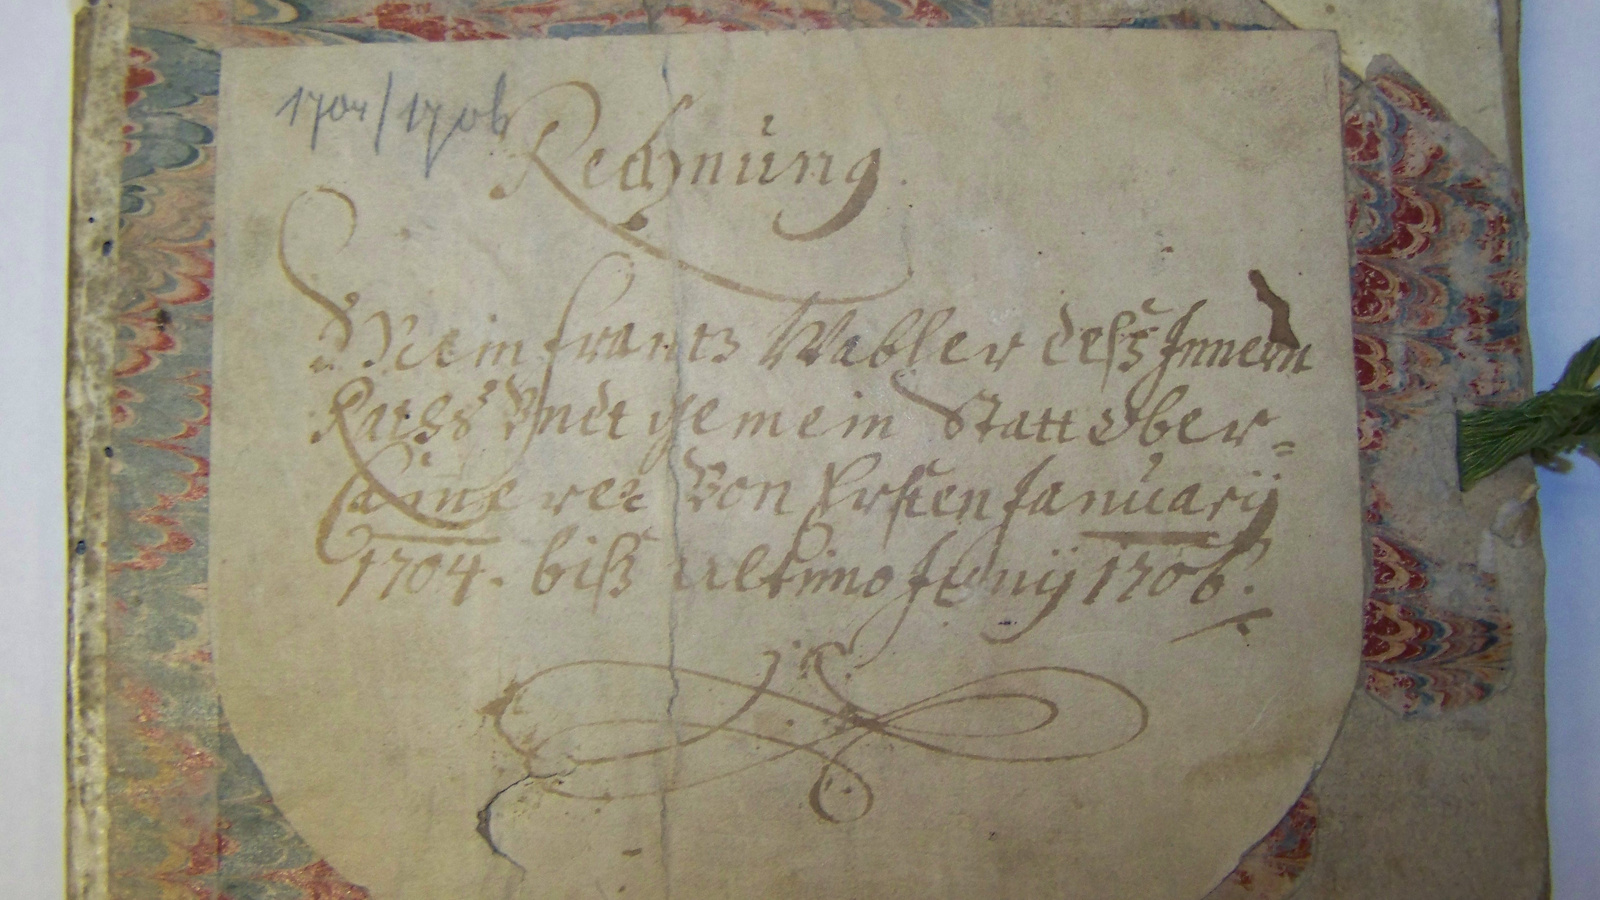 1704/1706
Rechnüng
Mein frantz Wabler deß Innern
Raths Vndt gemein Statt Ober=
Camerer Von Ersten Januarÿ
1704. biß ultimo Junÿ 1706.